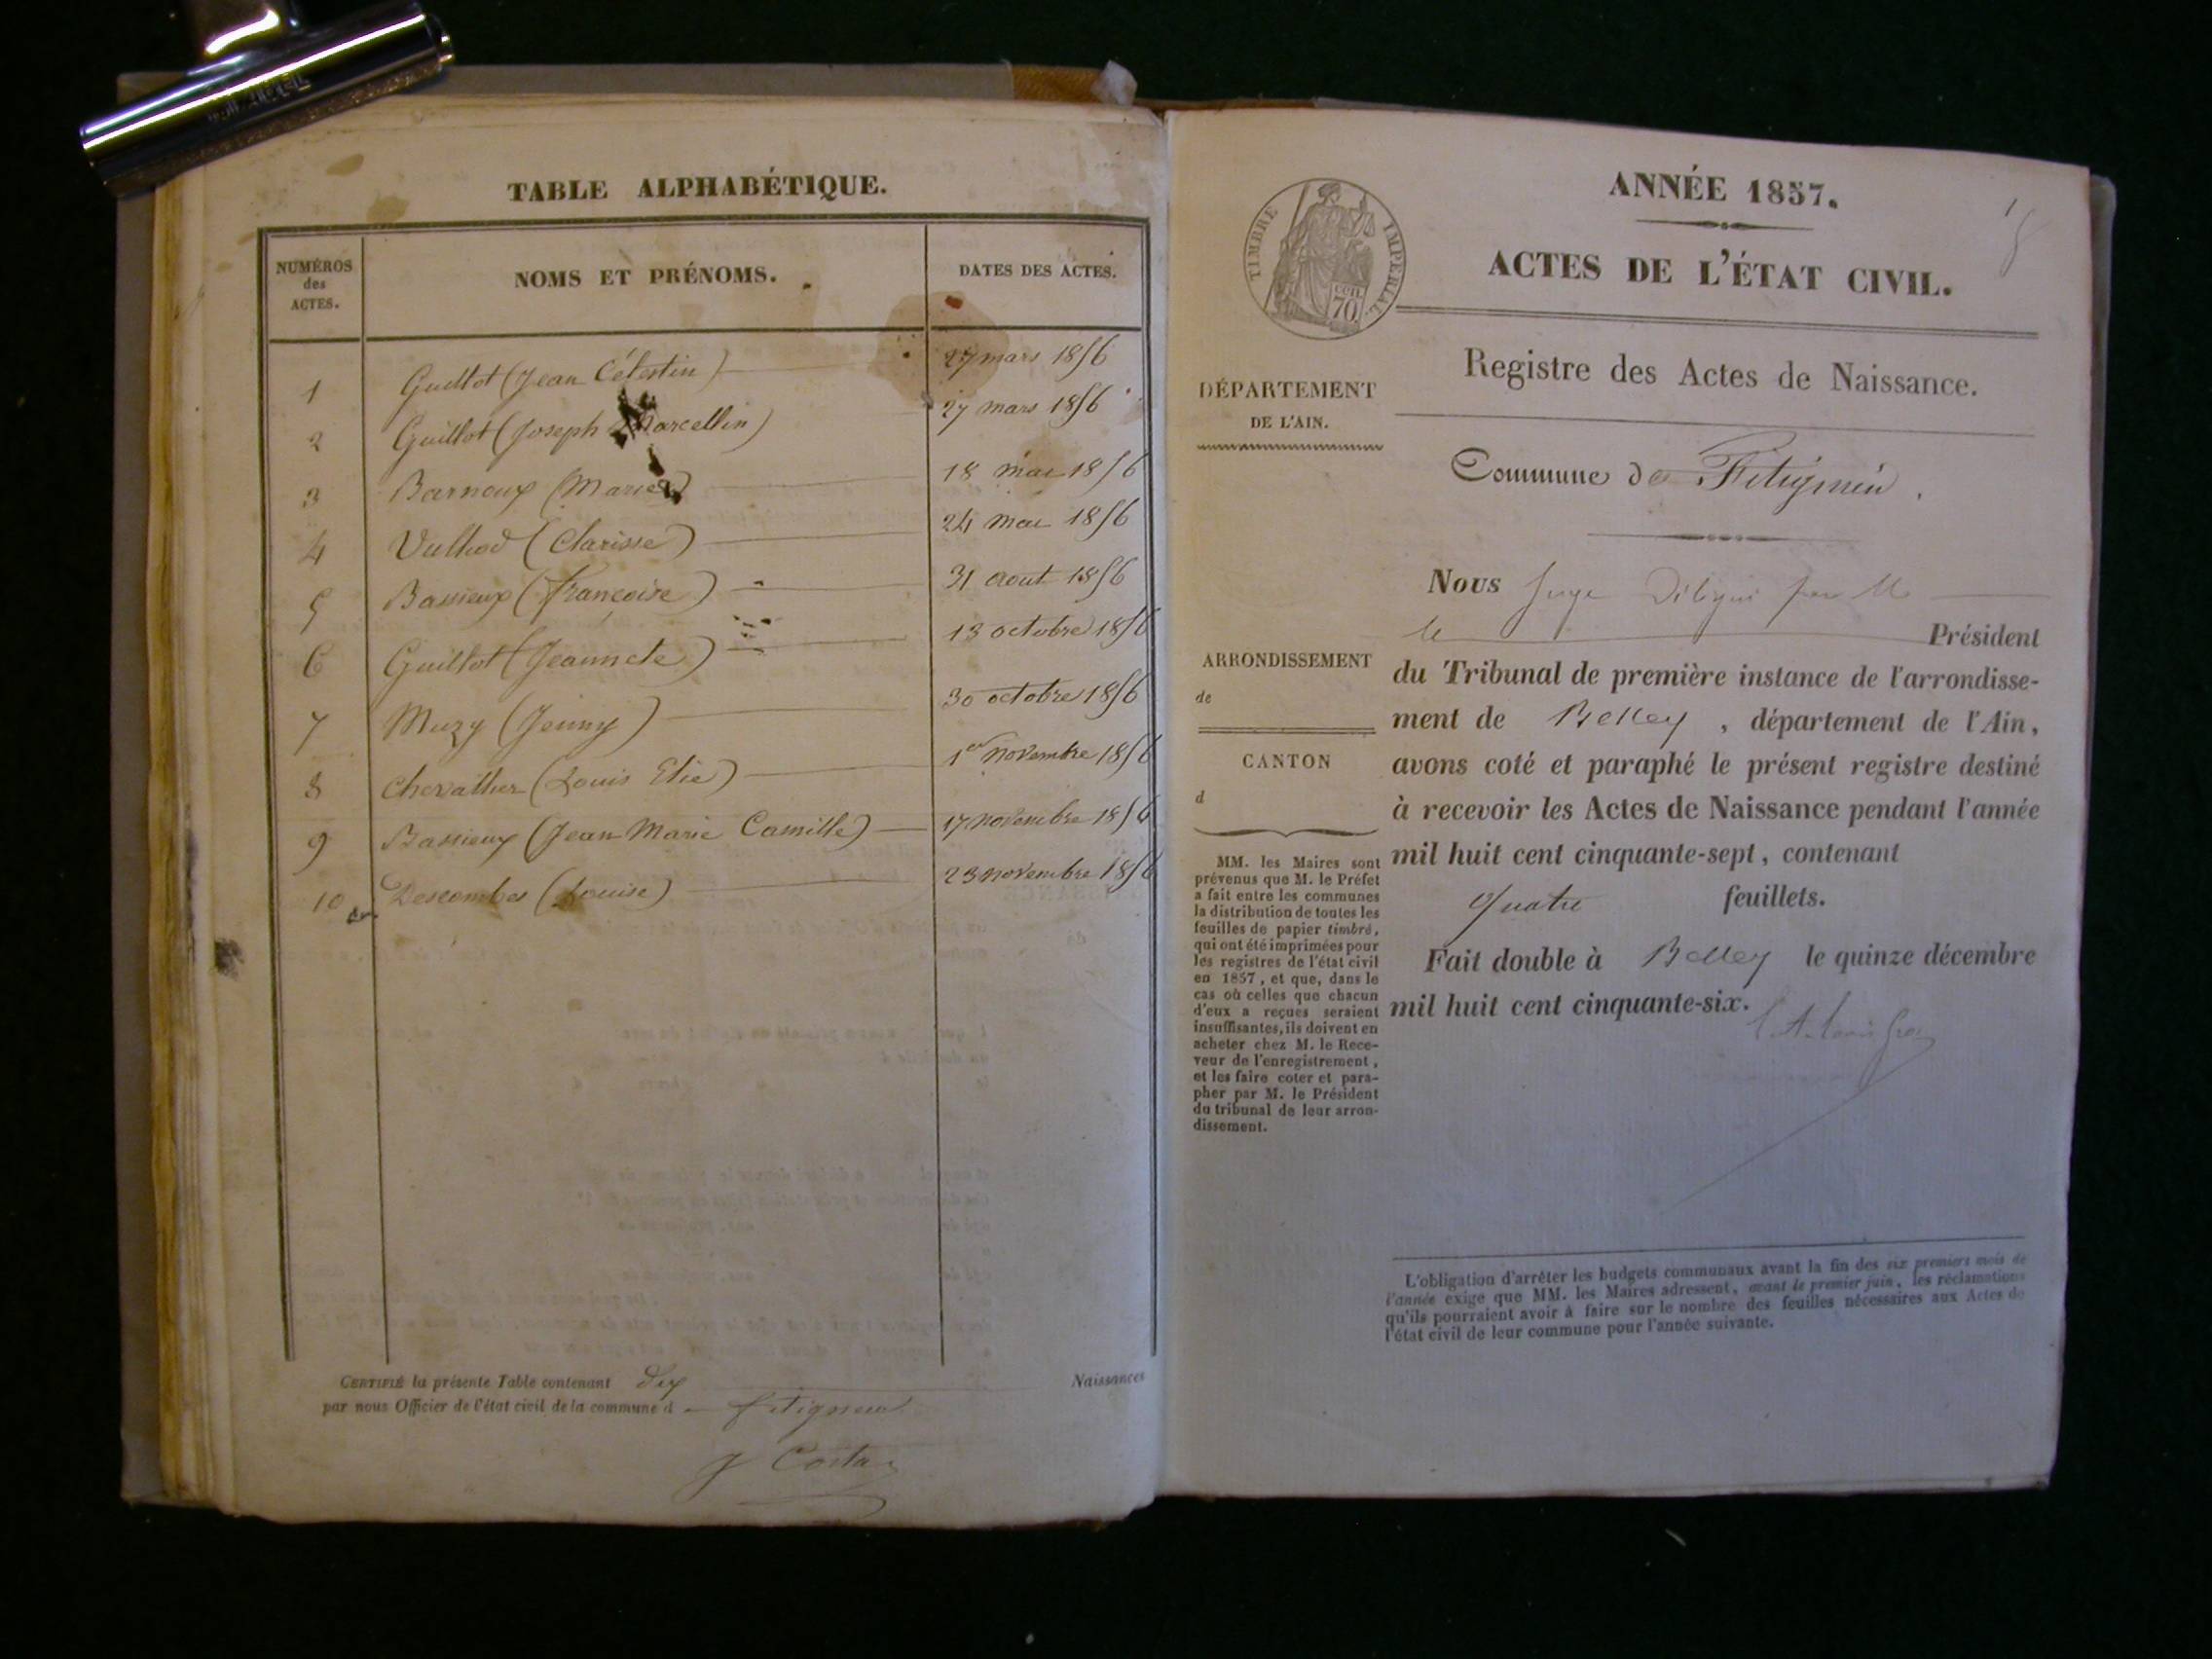 TABLE ALPHABÉTIQUE.
NUMÉROS
des
ACTES.
NOMS ET PRÉNOMS.
DATES DES ACTES.
1 Guillot (Jean Célestin) 27 mars 1856
2 Guillot (Joseph Marcellin) 27 mars 1856
3 Barnoux (Marie) 18 mai 1856
4 Vulliod (Clarisse) 24 mai 1856
5 Bassieux (francoise) 31 aout 1856
6 Guillot (Jeannete) 13 octobre 1856
7 Muzy (Jenny) 30 octobre 1856
8 Chevallier (Louis Elie) 1er novembre 1856
9 Bassieux (Jean Marie Camille) 17 novembre 1856
10 Descombes (Louise) 23 novembre 1856
CERTIFIÉ la présente Table contenant dix Naissances
par nous Officier de l'état civil de la commune d fitignieu
J Costaz
ANNÉE 1857.
TIMBRE IMPÉRIAL
CEN.
70.
ACTES DE L'ÉTAT CIVIL.
Registre des Actes de Naissance.
DÉPARTEMENT
DE L'AIN.
Commune de Fitignieu.
Nous Juge Délégué par M
le Président
ARRONDISSEMENT
de
CANTON
d
du Tribunal de première instance de l'arrondisse-
ment de Belley, département de l'Ain,
avons coté et paraphé le présent registre destiné
à recevoir les Actes de Naissance pendant l'année
mil huit cent cinquante-sept, contenant
quatre feuillets.
Fait double à Belley le quinze décembre
mil huit cent cinquante-six.
MM. les Maires sont
prévenus que M. le Préfet
a fait entre les communes
la distribution de toutes les
feuilles de papier timbré,
qui ont été imprimées pour
les registres de l'état civil
en 1857, et que, dans le
cas où celles que chacun
d'eux a reçues seraient
insuffisantes, ils doivent en
acheter chez M. le Rece-
veur de l'enregistrement,
et les faire coter et para-
pher par M. le Président
du tribunal de leur arron-
dissement.
L'obligation d'arrêter les budgets communaux avant la fin des six premiers mois de
l'année exige que MM. les Maires adressent, avant le premier juin, les réclamations
qu'ils pourraient avoir à faire sur le nombre des feuilles nécessaires aux Actes de
l'état civil de leur commune pour l'année suivante.